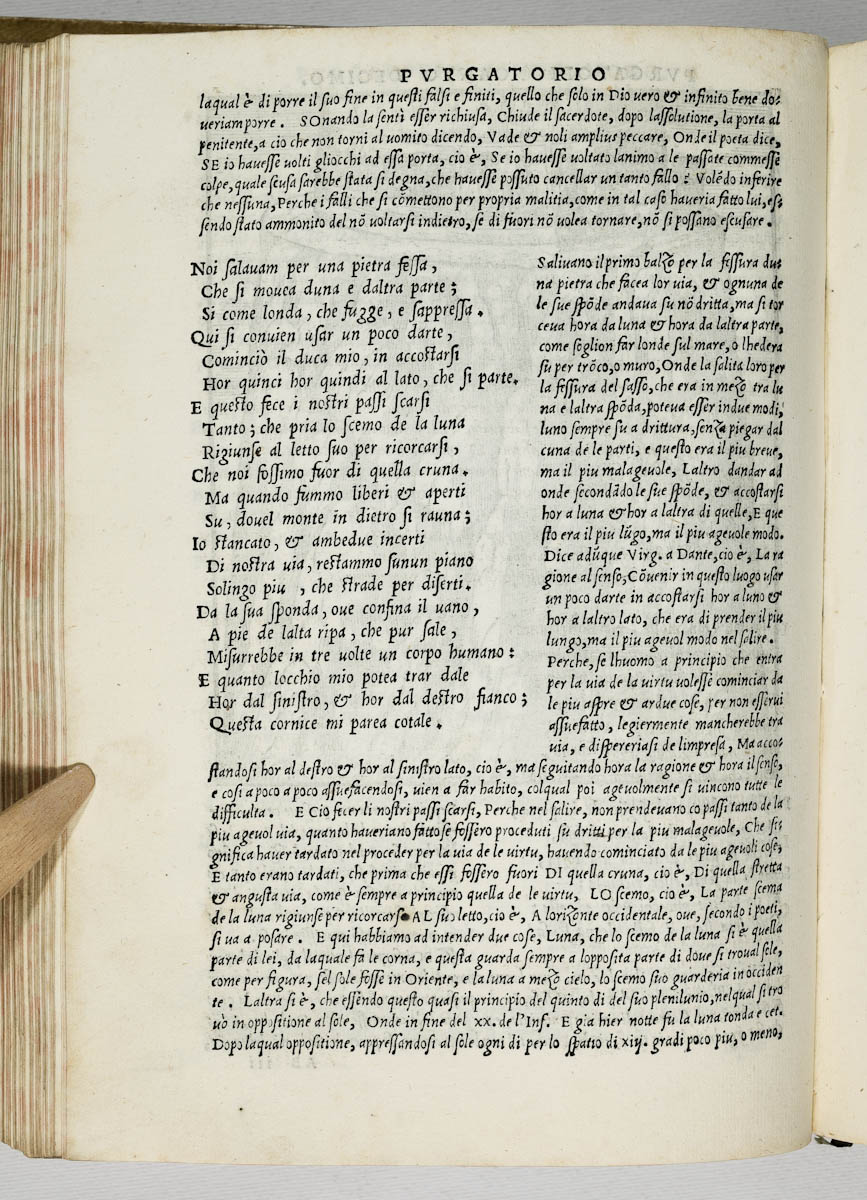 PVRGATORIO
laqual è di porre il suo fine in questi falsi e finiti, quello che solo in Dio uero & infinito bene do-
ueriam porre. SOnando la senti esser richiusa, Chiude il sacerdote, dopo lassolutione, la porta al
penitente, a cio che non torni al uomito dicendo, Vade & noli amplius peccare, Onde il poeta dice,
SE io hauesse uolti gliocchi ad essa porta, cio è, Se io hauesse uoltato lanimo a le passate commesse
colpe, quale scusa sarebbe stata si degna, che hauesse possuto cancellar un tanto fallo? Volēdo inferire
che nessuna, Perche i falli che si cōmettono per propria malitia, come in tal caso haueria fatto lui, es-
sendo stato ammonito del nō uoltarsi indietro, se di fuori nō uolea tornare, nō si possano escusare.
Noi salauam per una pietra fessa,
Che si mouea duna e daltra parte;
Si come londa, che fugge, e sappressa.
Qui si conuien usar un poco darte,
Cominciò il duca mio, in accostarsi
Hor quinci hor quindi al lato, che si parte.
E questo fece i nostri passi scarsi
Tanto; che pria lo scemo de la luna
Rigiunse al letto suo per ricorcarsi,
Che noi fossimo fuor di quella cruna.
Ma quando fummo liberi & aperti
Su, douel monte in dietro si rauna;
Io stancato, & ambedue incerti
Di nostra uia, restammo sunun piano
Solingo piu , che strade per diserti.
Da la sua sponda, oue confina il uano,
A pie de lalta ripa, che pur sale,
Misurrebbe in tre uolte un corpo humano:
E quanto locchio mio potea trar dale
Hor dal sinistro, & hor dal destro fianco;
Questa cornice mi parea cotale.
Saliuano il primo balzo per la fessura du-
na pietra che facea lor uia, & ognuna de
le sue spōde andaua su nō dritta, ma si tor
ceua hora da luna & hora da laltra parte,
come soglion far londe sul mare, o lhedera
su per trōco, o muro, Onde la salita loro per
la fessura del sasso, che era in mezo tra lu
na e laltra spōda, poteua esser in due modi,
luno sempre su a drittura, senza piegar dal
cuna de le parti, e questo era il piu breue,
ma il piu malageuole, Laltro dandar ad
onde secondādo le sue spōde, & accostarsi
hor a luna & hor a laltra di quelle, E que
sto era il piu lūgo, ma il piu ageuole modo.
Dice adūque Virg. a Dante, cio è, La ra
gione al senso, Cōuenir in questo luogo usar
un poco darte in accostarsi hor a luno &
hor a laltro lato, che era di prender il piu
lungo, ma il piu ageuol modo nel salire.
Perche, se lhuomo a principio che entra
per la uia de la uirtu uolesse cominciar da
le piu aspre & ardue cose, per non esserui
assuefatto, legiermente mancherebbe tra
uia, e dispereriasi de limpresa, Ma acco-
standosi hor al destro & hor al sinistro lato, cio è, ma seguitando hora la ragione & hora il senso,
e cosi a poco a poco assuefacendosi, uien a far habito, colqual poi ageuolmente si uincono tutte le
difficulta. E Cio fecer li nostri passi scarsi, Perche nel salire, non prendeuano co passi tanto de la
piu ageuol uia, quanto haueriano fatto se fossero proceduti su dritti per la piu malageuole, Che si-
gnifica hauer tardato nel proceder per la uia de le uirtu, hauendo cominciato da le piu ageuoli cose,
E tanto erano tardati, che prima che essi fossero fuori DI quella cruna, cio è, Di quella stretta
& angusta uia, come è sempre a principio quella de le uirtu, LO scemo, cio è, La parte scema
de la luna rigiunse per ricorcarsi AL suo letto, cio è, A lorizonte occidentale, oue, secondo i poeti,
si ua a posare. E qui habbiamo ad intender due cose, Luna, che lo scemo de la luna si è quella
parte di lei, da laquale fa le corna, e questa guarda sempre a lopposita parte di doue si troual sole,
come per figura, sel sole fosse in Oriente, e la luna a mezo cielo, lo scemo suo guarderia in occiden
te. Laltra si è, che essendo questo quasi il principio del quinto di del suo plenilunio, nelqual si tro
uò in oppositione al sole, Onde in fine del xx. de l'Inf. E gia hier notte fu la luna tonda e cet.
Dopo laqual oppositione, appressandosi al sole ogni di per lo spatio di xiij. gradi poco piu, o meno,